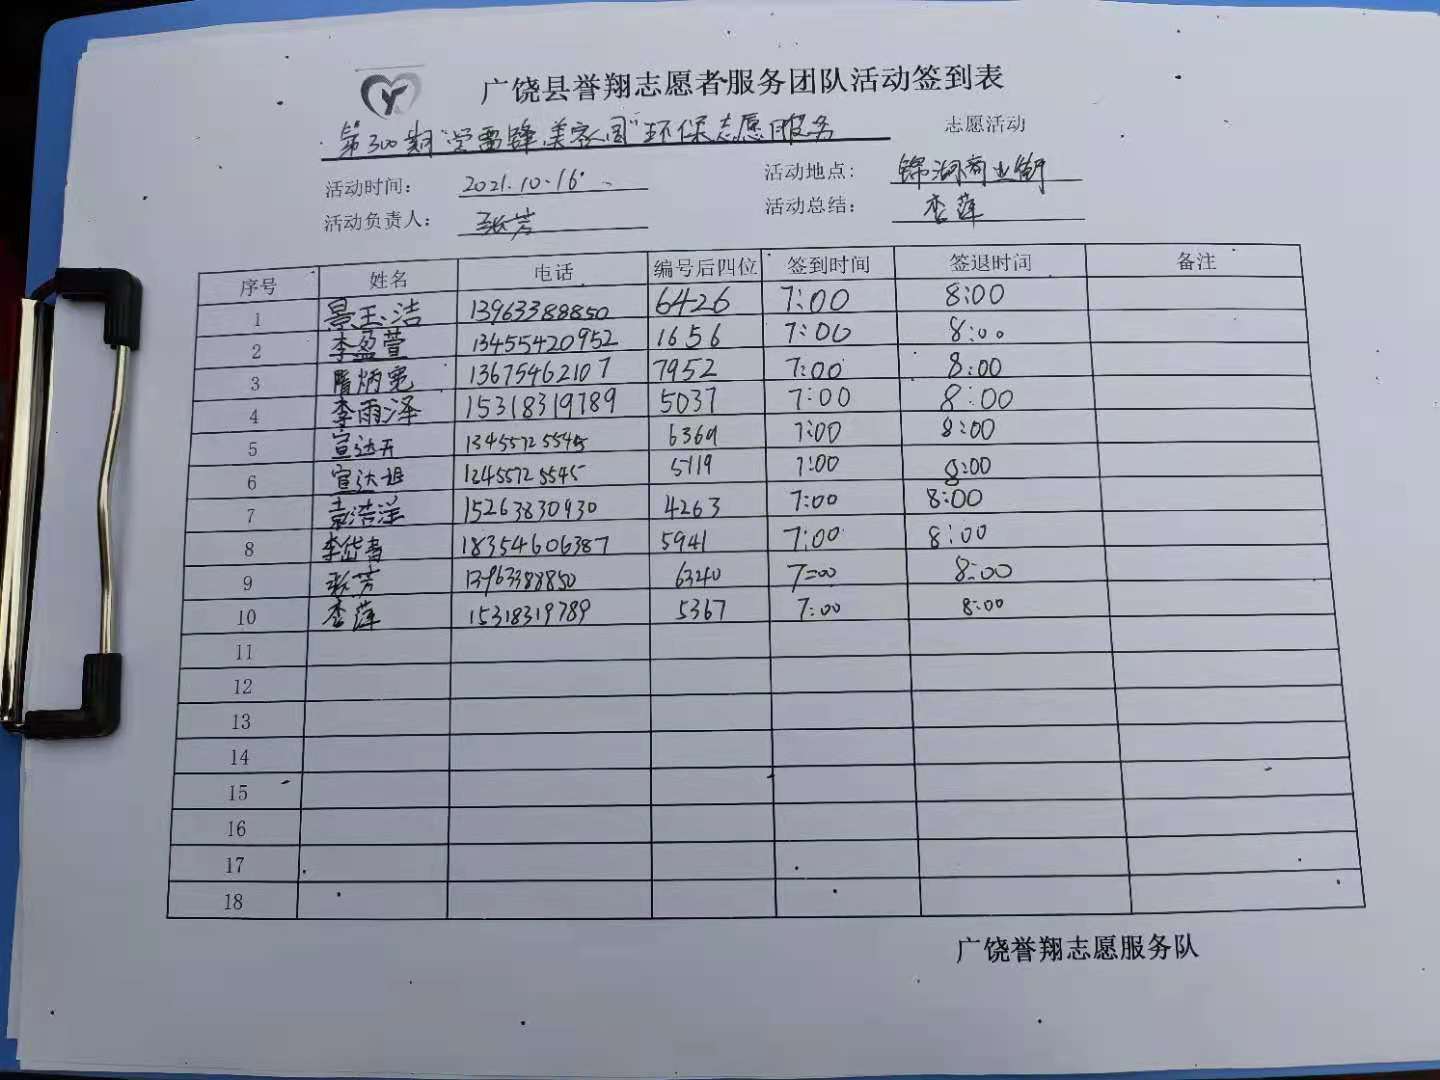 广饶县誉翔志愿者服务团队活动签到表
第300期"学雷锋 美家园"环保志愿服务 志愿活动
活动时间： 2021.10.16. 活动地点： 锦湖商业街
活动负责人： 张芳 活动总结： 李萍
序号 姓名 电话 编号后四位 签到时间 签退时间 备注
1 景玉洁 13963388850 6426 7:00 8:00
2 李盈萱 13455420952 1656 7:00 8:00
3 隋炳宽 13675462107 7952 7:00 8:00
4 李雨泽 15318319789 5037 7:00 8:00
5 宣达开 13455725545 6369 7:00 8:00
6 宣达 13455725545 5119 7:00 8:00
7 袁浩洋 15263830930 4263 7:00 8:00
8 李岱 18354606387 5941 7:00 8:00
9 张芳 13963388850 6340 7:00 8:00
10 李萍 15318319789 5367 7:00 8:00
11
12
13
14
15
16
17
18
广饶誉翔志愿服务队